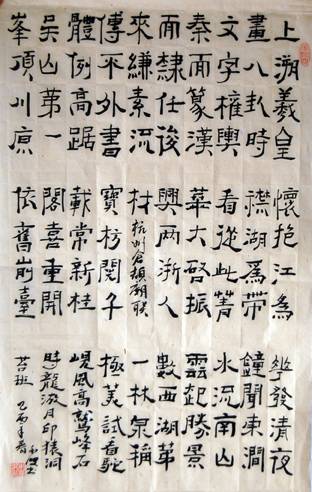 上溯羲皇
畫八卦時
文字權輿
秦而篆漢
而隸任後
來縑素流
傳平外書
體例高踞
吳山第一
峯頂川原
懷抱江為
襟湖為帶
看從此菁
華大啓振
興兩浙人
材杭州倉頡祠聯
寶枋閱千
載常新桂
閣喜重開
依舊前臺
花發清夜
鐘聞東澗
水流南山
雲起勝景
數西湖第
一林泉稱
極美試看駝
峴風高鷲峰石
龍泓月印猿洞
苔斑 乙酉年春